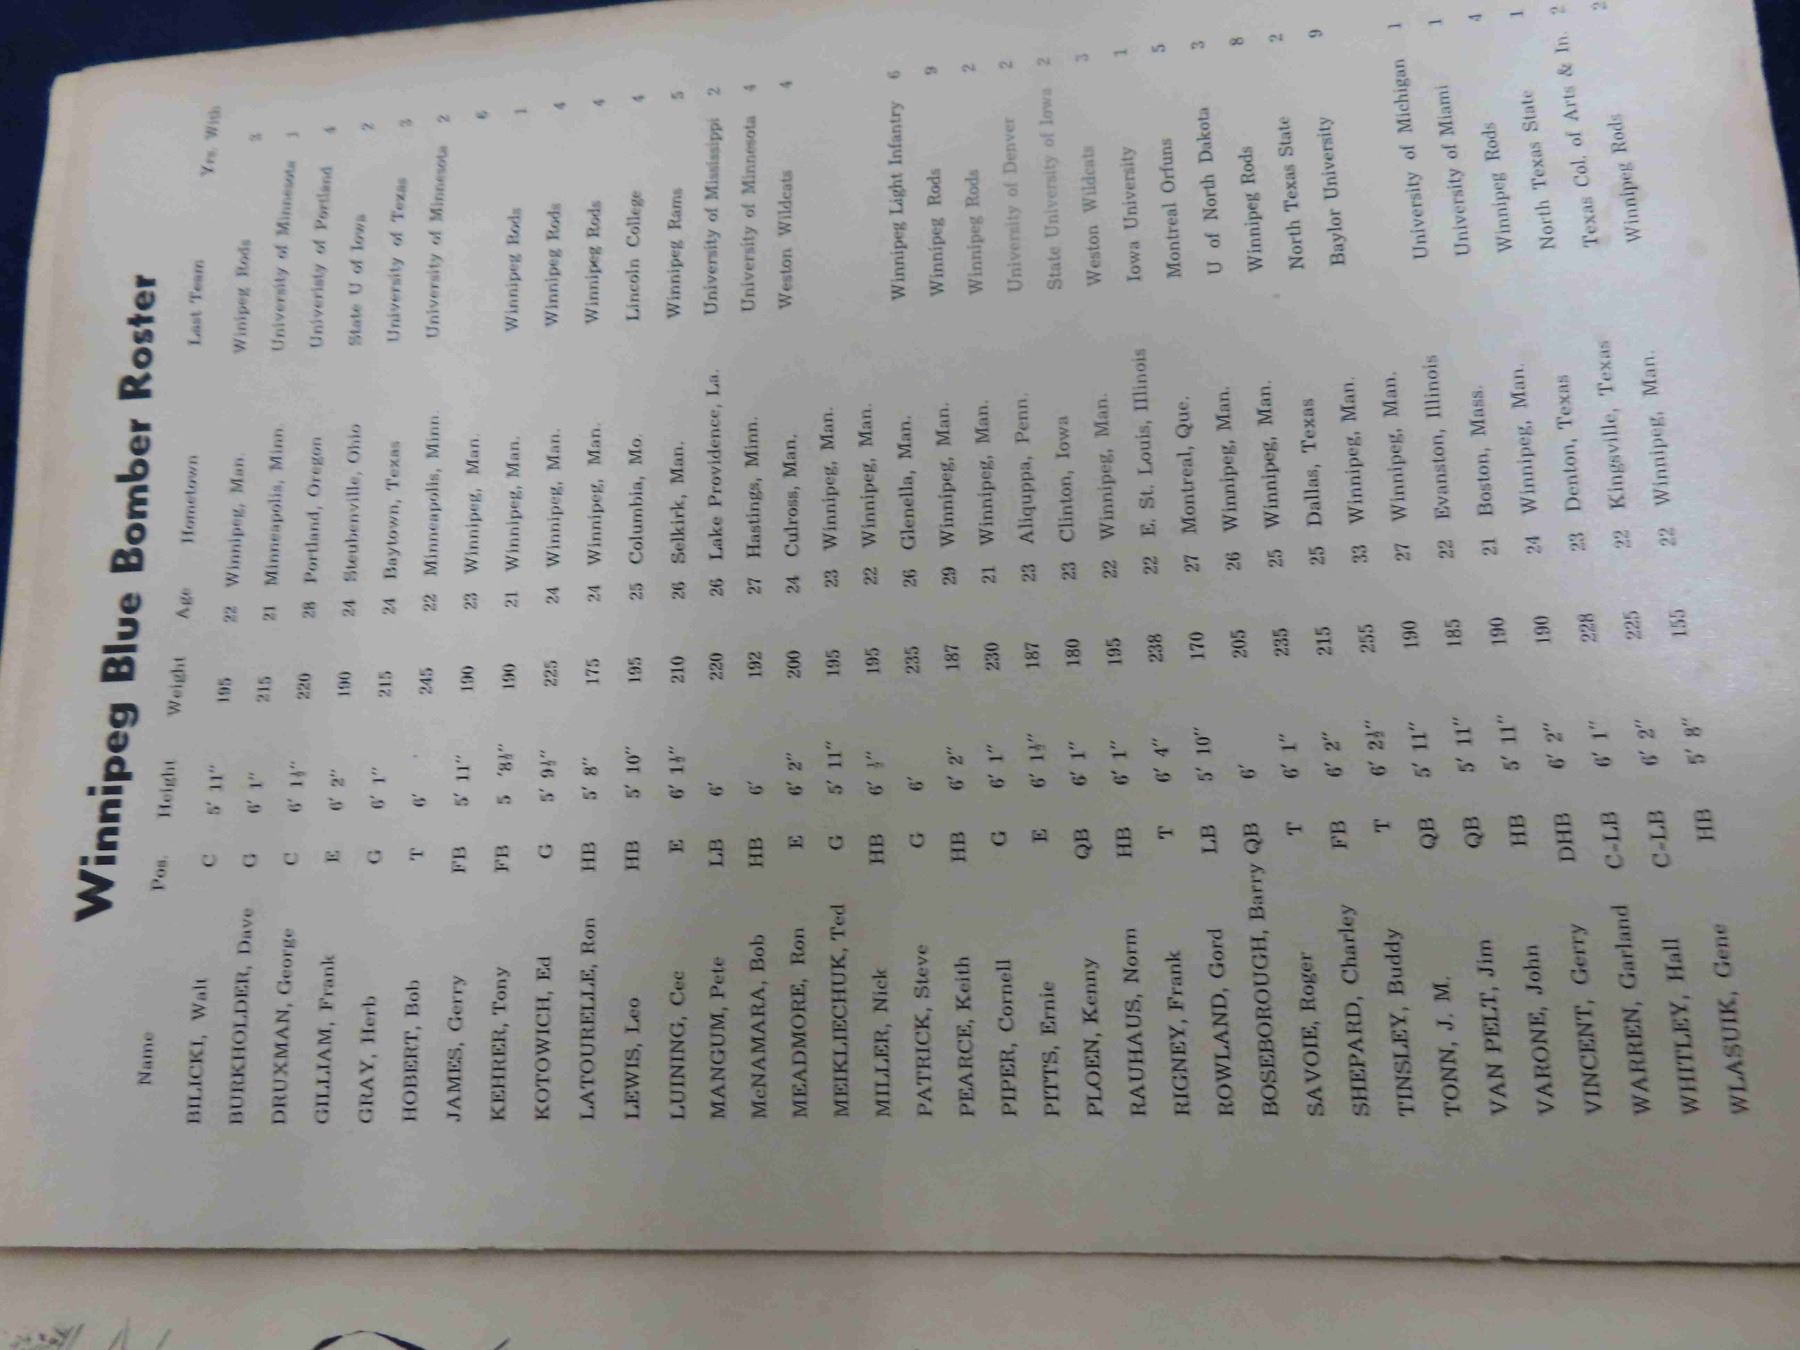 Winnipeg Blue Bomber Roster
Name Pos. Height Weight Age Hometown Last Team Yrs. With
BILICKI, Walt C 5' 11" 195 22 Winnipeg, Man. Winipeg Rods 3
BURKHOLDER, Dave G 6' 1" 215 21 Minneapolis, Minn. University of Minnesota 1
DRUXMAN, George C 6' 1½" 220 28 Portland, Oregon Univeristy of Portland 4
GILLIAM, Frank E 6' 2" 190 24 Steubenville, Ohio State U of Iowa 2
GRAY, Herb G 6' 1" 215 24 Baytown, Texas University of Texas 3
HOBERT, Bob T 6' 245 22 Minneapolis, Minn. University of Minnesota 2
JAMES, Gerry FB 5' 11" 190 23 Winnipeg, Man. 6
KEHRER, Tony FB 5 '8½" 190 21 Winnipeg, Man. Winnipeg Rods 1
KOTOWICH, Ed G 5' 9½" 225 24 Winnipeg, Man. Winnipeg Rods 4
LATOURELLE, Ron HB 5' 8" 175 24 Winnipeg, Man. Winnipeg Rods 4
LEWIS, Leo HB 5' 10" 195 25 Columbia, Mo. Lincoln College 4
LUINING, Cec E 6' 1½" 210 26 Selkirk, Man. Winnipeg Rams 5
MANGUM, Pete LB 6' 220 26 Lake Providence, La. University of Mississippi 2
McNAMARA, Bob HB 6' 192 27 Hastings, Minn. University of Minnesota 4
MEADMORE, Ron E 6' 2" 200 24 Culross, Man. Weston Wildcats 4
MEIKLIECHUK, Ted G 5' 11" 195 23 Winnipeg, Man.
MILLER, Nick HB 6' ½" 195 22 Winnipeg, Man.
PATRICK, Steve G 6' 235 26 Glenella, Man. Winnipeg Light Infantry 6
PEARCE, Keith HB 6' 2" 187 29 Winnipeg, Man. Winnipeg Rods 9
PIPER, Cornell G 6' 1" 230 21 Winnipeg, Man. Winnipeg Rods 2
PITTS, Ernie E 6' 1½" 187 23 Aliquppa, Penn. University of Denver 2
PLOEN, Kenny QB 6' 1" 180 23 Clinton, Iowa State University of Iowa 2
RAUHAUS, Norm HB 6' 1" 195 22 Winnipeg, Man. Weston Wildcats 3
RIGNEY, Frank T 6' 4" 238 22 E. St. Louis, Illinois Iowa University 1
ROWLAND, Gord LB 5' 10" 170 27 Montreal, Que. Montreal Orfuns 5
BOSEBOROUGH, Barry QB 6' 205 26 Winnipeg, Man. U of North Dakota 3
SAVOIE, Roger T 6' 1" 235 25 Winnipeg, Man. Winnipeg Rods 8
SHEPARD, Charley FB 6' 2" 215 25 Dallas, Texas North Texas State 2
TINSLEY, Buddy T 6' 2½" 255 33 Winnipeg, Man. Baylor University 9
TONN, J. M. QB 5' 11" 190 27 Winnipeg, Man.
VAN PELT, Jim QB 5' 11" 185 22 Evanston, Illinois University of Michigan 1
VARONE, John HB 5' 11" 190 21 Boston, Mass. University of Miami 1
VINCENT, Gerry DHB 6' 2" 190 24 Winnipeg, Man. Winnipeg Rods 4
WARREN, Garland C-LB 6' 1" 228 23 Denton, Texas North Texas State 1
WHITLEY, Hall C-LB 6' 2" 225 22 Kingsville, Texas Texas Col. of Arts & In. 2
WLASUIK, Gene HB 5' 8" 155 22 Winnipeg, Man. Winnipeg Rods 2